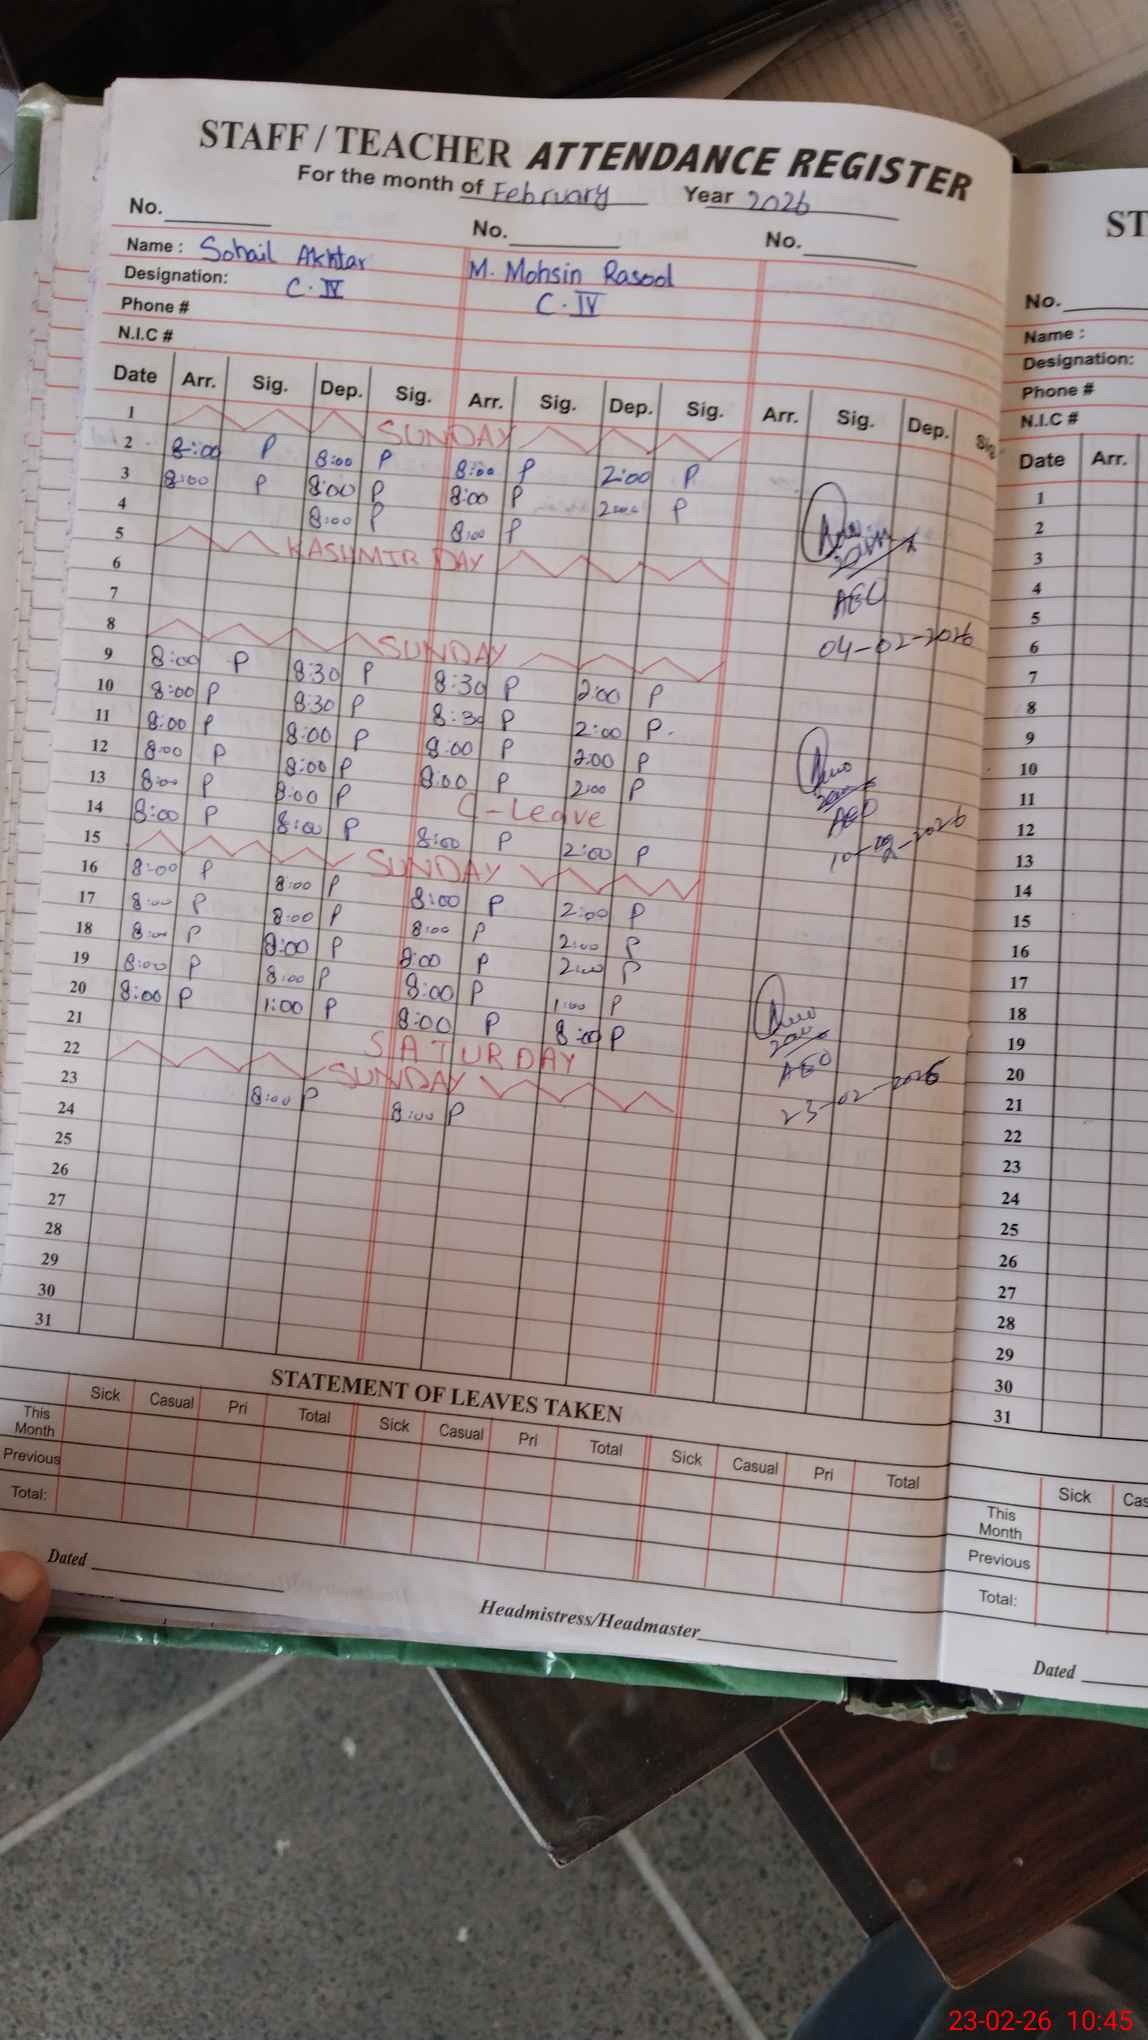 STAFF / TEACHER ATTENDANCE REGISTER
For the month of February Year 2026
No. No. No.
Name : Sohail Akhtar M. Mohsin Rasool
Designation: C.IV C.IV
Phone #
N.I.C #
Date Arr. Sig. Dep. Sig. Arr. Sig. Dep. Sig. Arr. Sig. Dep. Sig.
1 SUNDAY
2 8:00 P 8:00 P 8:00 P 2:00 P
3 8:00 P 8:00 P 8:00 P 2:00 P
4 8:00 P 8:00 P
5 KASHMIR DAY
6
AEO
7
04-02-2026
8 SUNDAY
9 8:00 P 8:30 P 8:30 P 2:00 P
10 8:00 P 8:30 P 8:30 P 2:00 P.
11 8:00 P 8:00 P 8:00 P 2:00 P
12 8:00 P 8:00 P 8:00 P 2:00 P
AEO
13 8:00 P 8:00 P C-Leave
10-02-2026
14 8:00 P 8:00 P 8:00 P 2:00 P
15 SUNDAY
16 8:00 P 8:00 P 8:00 P 2:00 P
17 8:00 P 8:00 P 8:00 P 2:00 P
18 8:00 P 8:00 P 8:00 P 2:00 P
19 8:00 P 8:00 P 8:00 P 1:00 P
20 8:00 P 1:00 P 8:00 P 8:00 P
21 SATURDAY
AEO
22 SUNDAY
23-02-2026
23 8:00 P 8:00 P
24
25
26
27
28
29
30
31
STATEMENT OF LEAVES TAKEN
Sick Casual Pri Total Sick Casual Pri Total Sick Casual Pri Total
This Month
Previous
Total:
Dated
Headmistress/Headmaster
ST
No.
Name :
Designation:
Phone #
N.I.C #
Date Arr.
1
2
3
4
5
6
7
8
9
10
11
12
13
14
15
16
17
18
19
20
21
22
23
24
25
26
27
28
29
30
31
Sick Cas
This Month
Previous
Total:
Dated
23-02-26 10:45